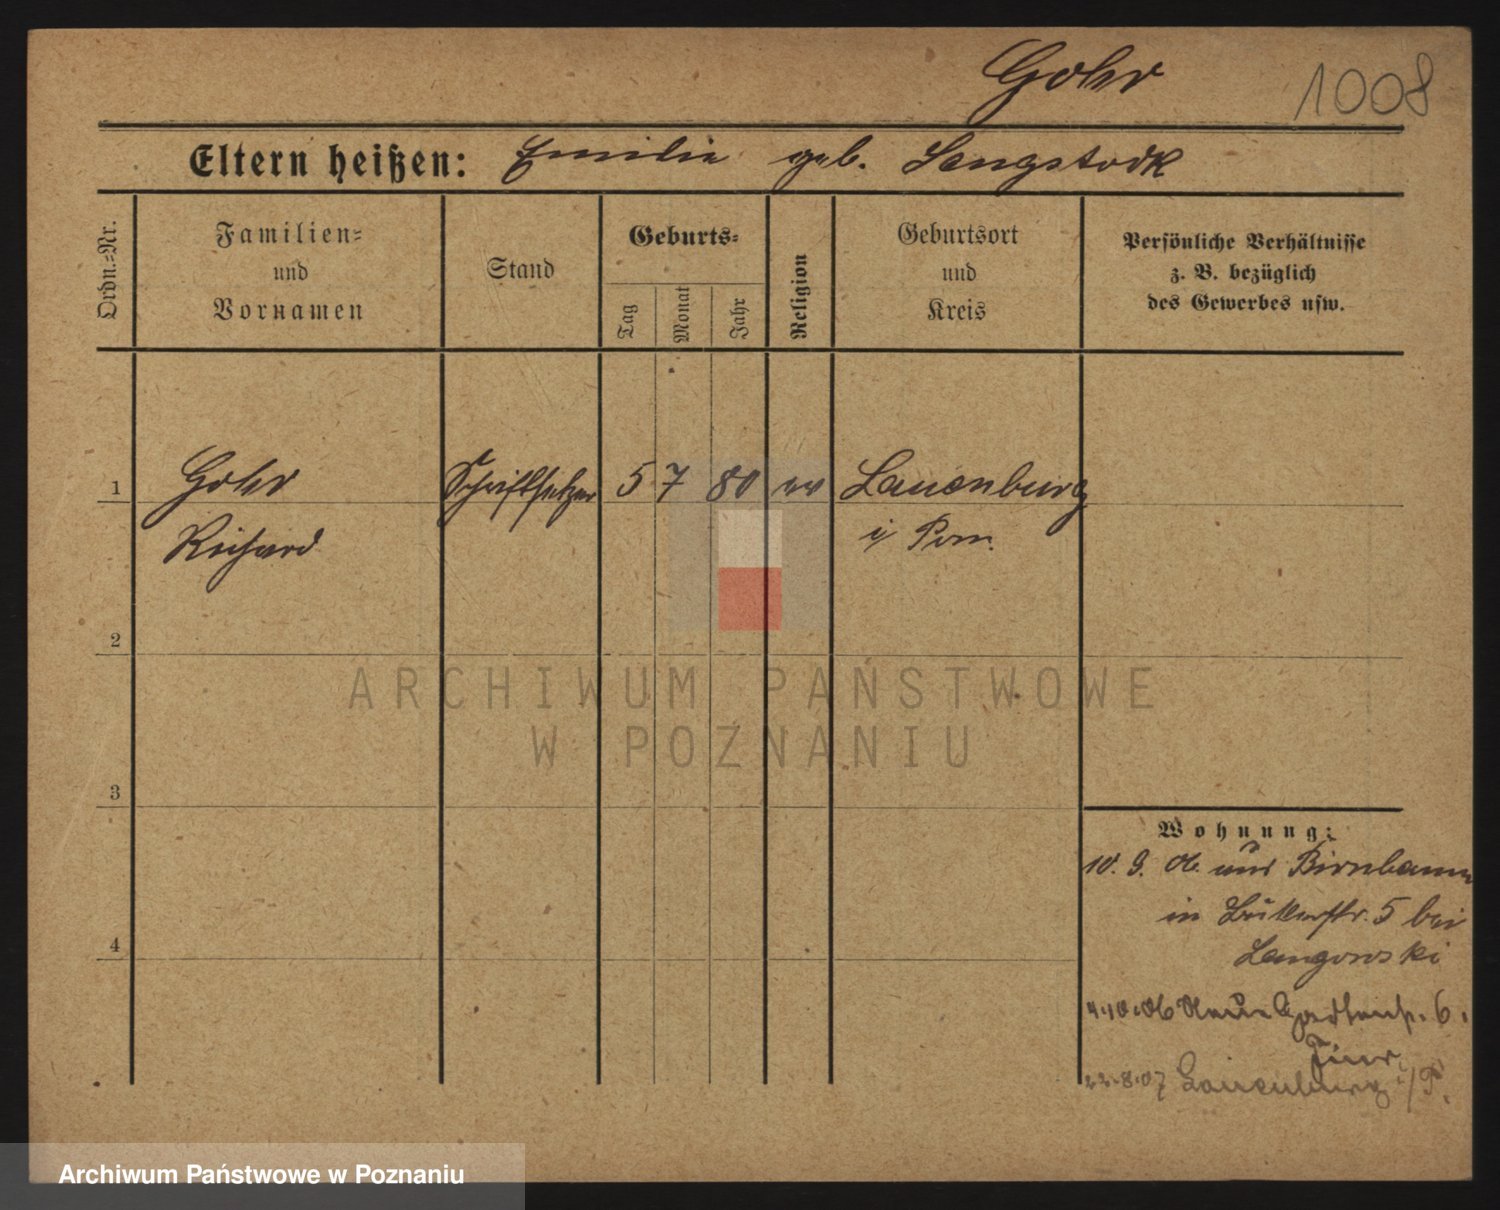 Gohr 1008
Eltern heißen: Emilie geb. Langstock
Ordn.-Nr.
Familien-
und
Vornamen
Stand
Geburts-
Tag
Monat
Jahr
Religion
Geburtsort
und
Kreis
Persönliche Verhältnisse
z. B. bezüglich
des Gewerbes usw.
1 Gohr Schriftsetzer 5 7 80 ev Lauenburg
Richard i/ Pom.
2
ARCHIWUM PAŃSTWOWE
W POZNANIU
3
Wohnung:
10. 9. 06. aus Birnbaum
in 5 bei
4
Langowski
4.10.06 Neue Gartenstr. 6.
22.8.07 Lauenburg i/P.
Archiwum Państwowe w Poznaniu